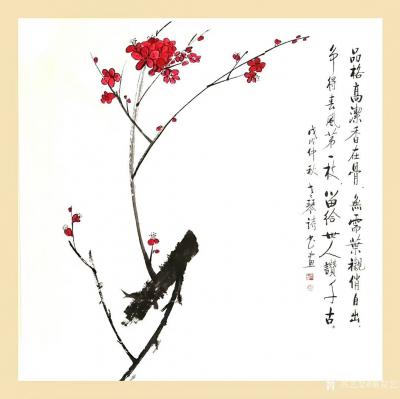 品格高潔香在骨、無需葉襯俏自出、
争得春風第一枝、留给世人讚千古。
戊戌仲秋
琴诗书画